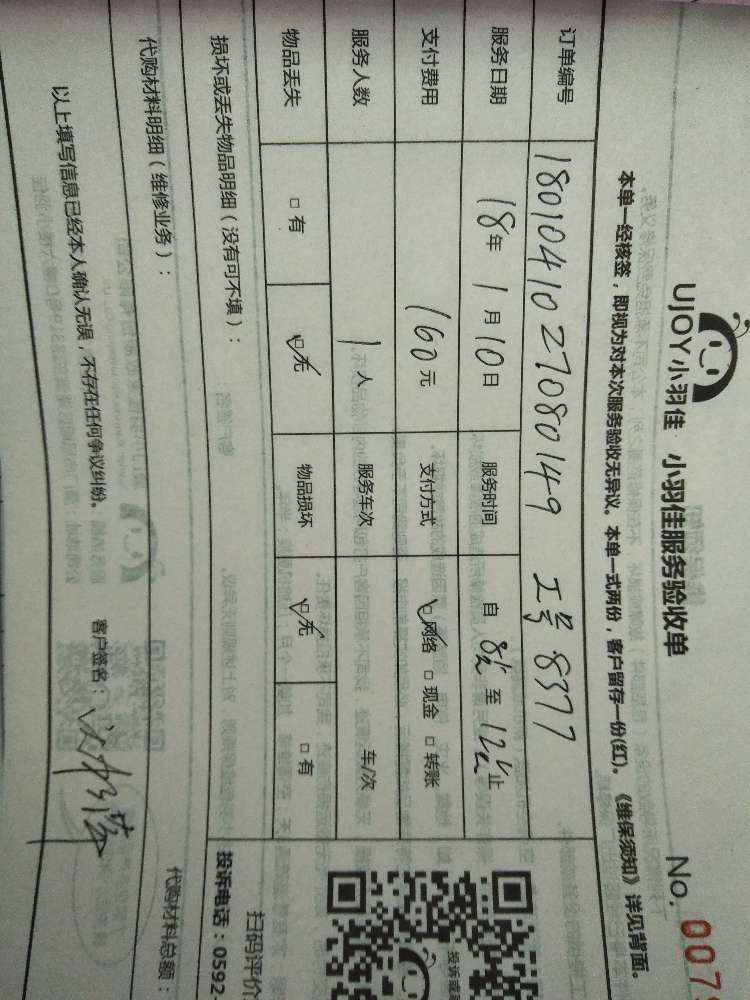 UJOY小羽佳 小羽佳服务验收单 No. 007
本单一经核签，即视为对本次服务验收无异议。本单一式两份，客户留存一份(红)。《维保须知》详见背面。
订单编号 180104102708014 9 工号 8377
服务日期 18年 1月10日 服务时间 自 8 至 12 止
支付费用 160元 支付方式 ☑网络 □现金 □转账
服务人数 1人 服务车次 车/次
物品丢失 □有 ☑无 物品损坏 ☑无 □有
损坏或丢失物品明细（没有可不填）：
代购材料明细（维修业务）： 代购材料总额：
以上填写信息已经本人确认无误，不存在任何争议纠纷。 客户签名：
投诉或
扫码评价
投诉电话：0592-